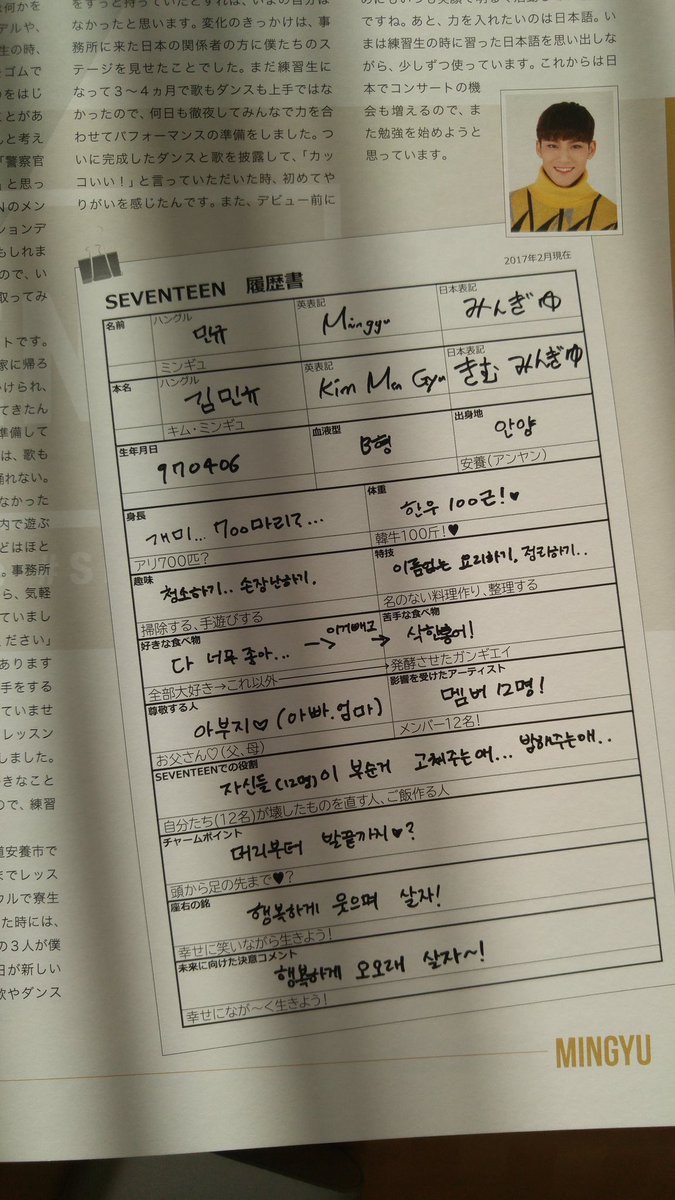 何かを
デルや、
生の時、
ゴムで
のをはじ
ことがあ
んと考え
「警察官
」と思っ
Nのメン
ションデ
もしれま
ので、い
取ってみ
ットです。
家に帰ろ
かけられ、
てきたん
準備して
は、歌も
踊れない。
なかった
内で遊ぶ
どはほと
。事務所
ら、気軽
ていまし
ください」
あります
手をする
ていませ
レッスン
しました。
きなこと
ので、練習
道安養市で
までレッス
ウルで寮生
た時には、
の3人が僕
日が新しい
歌やダンス
をずっと持っていたとすれば、いまの自分は
なかったと思います。変化のきっかけは、事
務所に来た日本の関係者の方に僕たちのス
テージを見せたことでした。まだ練習生に
なって3〜4ヵ月で歌もダンスも上手ではな
かったので、何日も徹夜してみんなで力を合
わせてパフォーマンスの準備をしました。つ
いに完成したダンスと歌を披露して、「カッ
コいい！」と言っていただいた時、初めてや
りがいを感じたんです。また、デビュー前に
ですね。あと、力を入れたいのは日本語。い
まは練習生の時に習った日本語を思い出しな
がら、少しずつ使っています。これからは日
本でコンサートの機
会も増えるので、ま
た勉強を始めようと
思っています。
SEVENTEEN 履歴書
2017年2月現在
名前 ハングル 민규 英表記 Mingyu 日本表記 みんぎゆ
ミンギュ
本名 ハングル 김민규 英表記 Kim Min Gyu 日本表記 きむ みんぎゆ
キム・ミンギュ
生年月日 970406 血液型 B형 出身地 안양
安養(アンヤン)
身長 개미... 700마리?... 体重 한우 100근!♥
アリ700匹? 韓牛100斤!♥
趣味 청소하기.. 손장난하기. 特技 이름없는 요리하기, 정리하기..
掃除する、手遊びする 名のない料理作り、整理する
好きな食べ物 다 너무 좋아... → 이거빼고 → 苦手な食べ物 삭힌홍어!
全部大好き→これ以外 → 発酵させたガンギエイ
尊敬する人 아부지♡(아빠.엄마) 影響を受けたアーティスト 멤버 12명!
お父さん♡(父、母) メンバー12名!
SEVENTEENでの役割 자신들(12명)이 부순거 고쳐주는애... 밥해주는애..
自分たち(12名)が壊したものを直す人、ご飯作る人
チャームポイント 머리부터 발끝까지♥?
頭から足の先まで♥?
座右の銘 행복하게 웃으며 살자!
幸せに笑いながら生きよう!
未来に向けた決意コメント 행복하게 오오래 살자~!
幸せになが〜く生きよう!
MINGYU